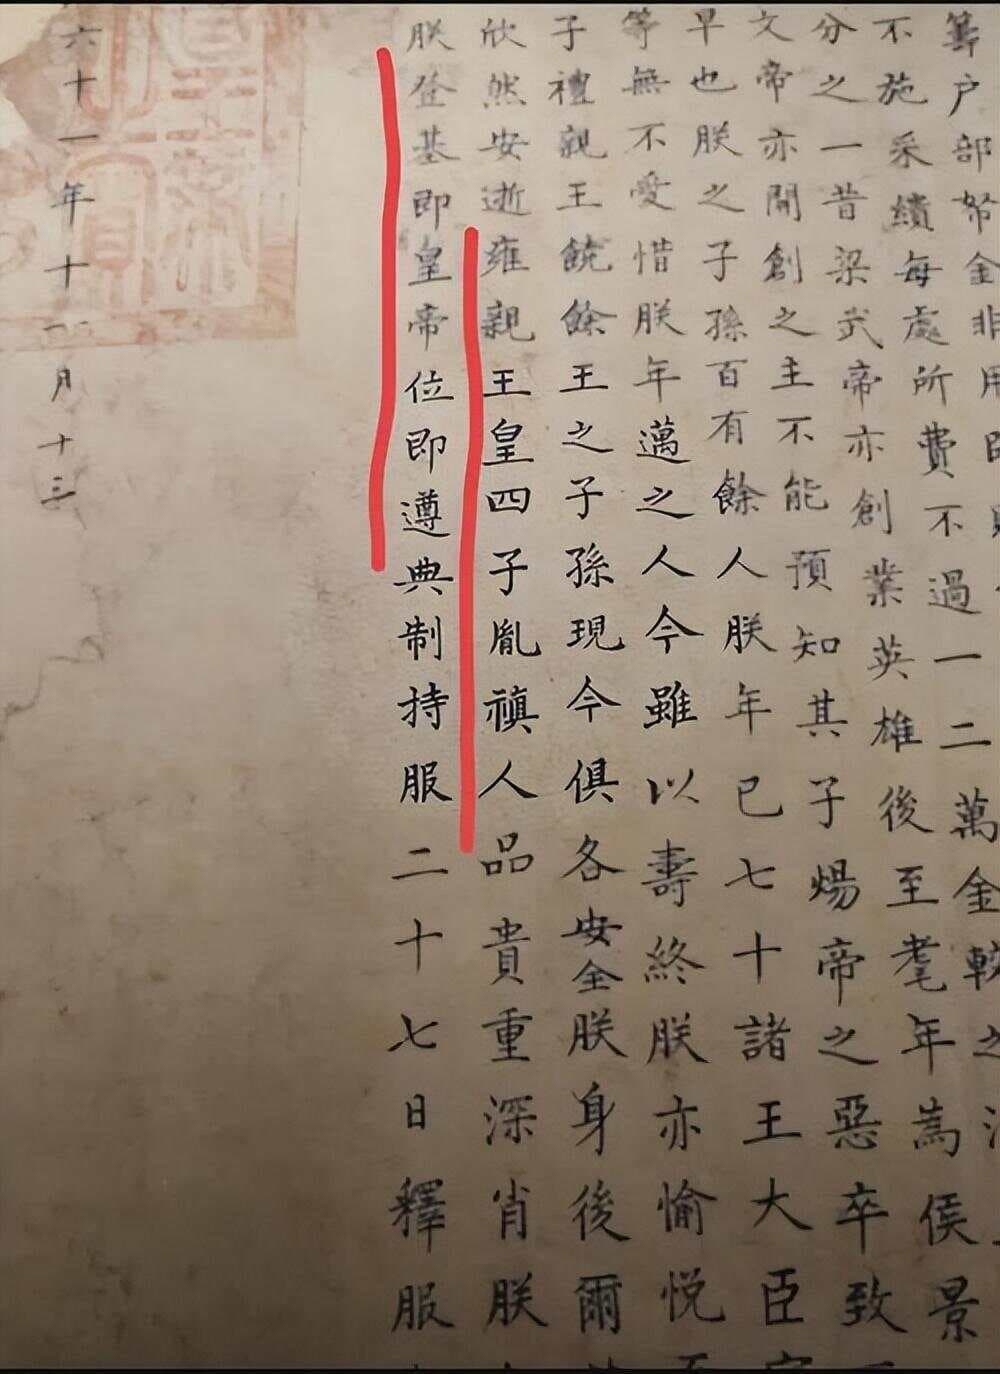 籌户部帑金非用師
不施采繢每處所費不過一二萬金較之
分之一昔梁武帝亦創業英雄後至耄年為侯景
文帝亦開創之主不能預知其子煬帝之惡卒致
早也朕之子孫百有餘人朕年已七十諸王大臣
等無不愛惜朕年邁之人今雖以壽終朕亦愉悅
子禮親王饒餘王之子孫現今俱各安全朕身後爾
欣然安逝雍親王皇四子胤禛人品貴重深肖朕
朕登基即皇帝位即遵典制持服二十七日釋服
六十一年十一月十三